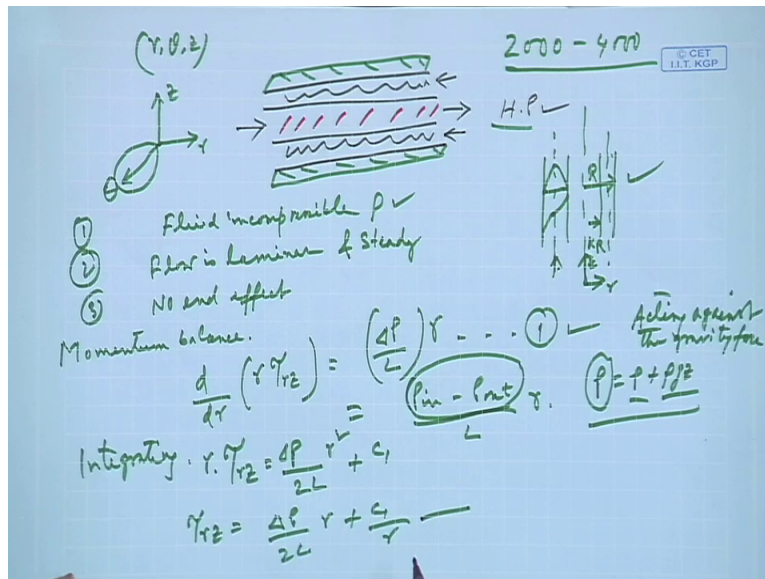 (r, θ, z)
2000 - 4000
© CET
I.I.T. KGP
H.P ✓
z
r
θ
R
r
KR
z
r
① Fluid incompressible ρ ✓
② Flow is Laminar & Steady
③ No end effect
Momentum balance.
d/dr (r τrz) = (ΔP/L) r - - - ① ✓
Acting against
the gravity force
= (Pin - Pout)/L r.
P = p + ρgz
Integrating. r. τrz = ΔP/2L r² + C1
τrz = ΔP/2L r + C1/r